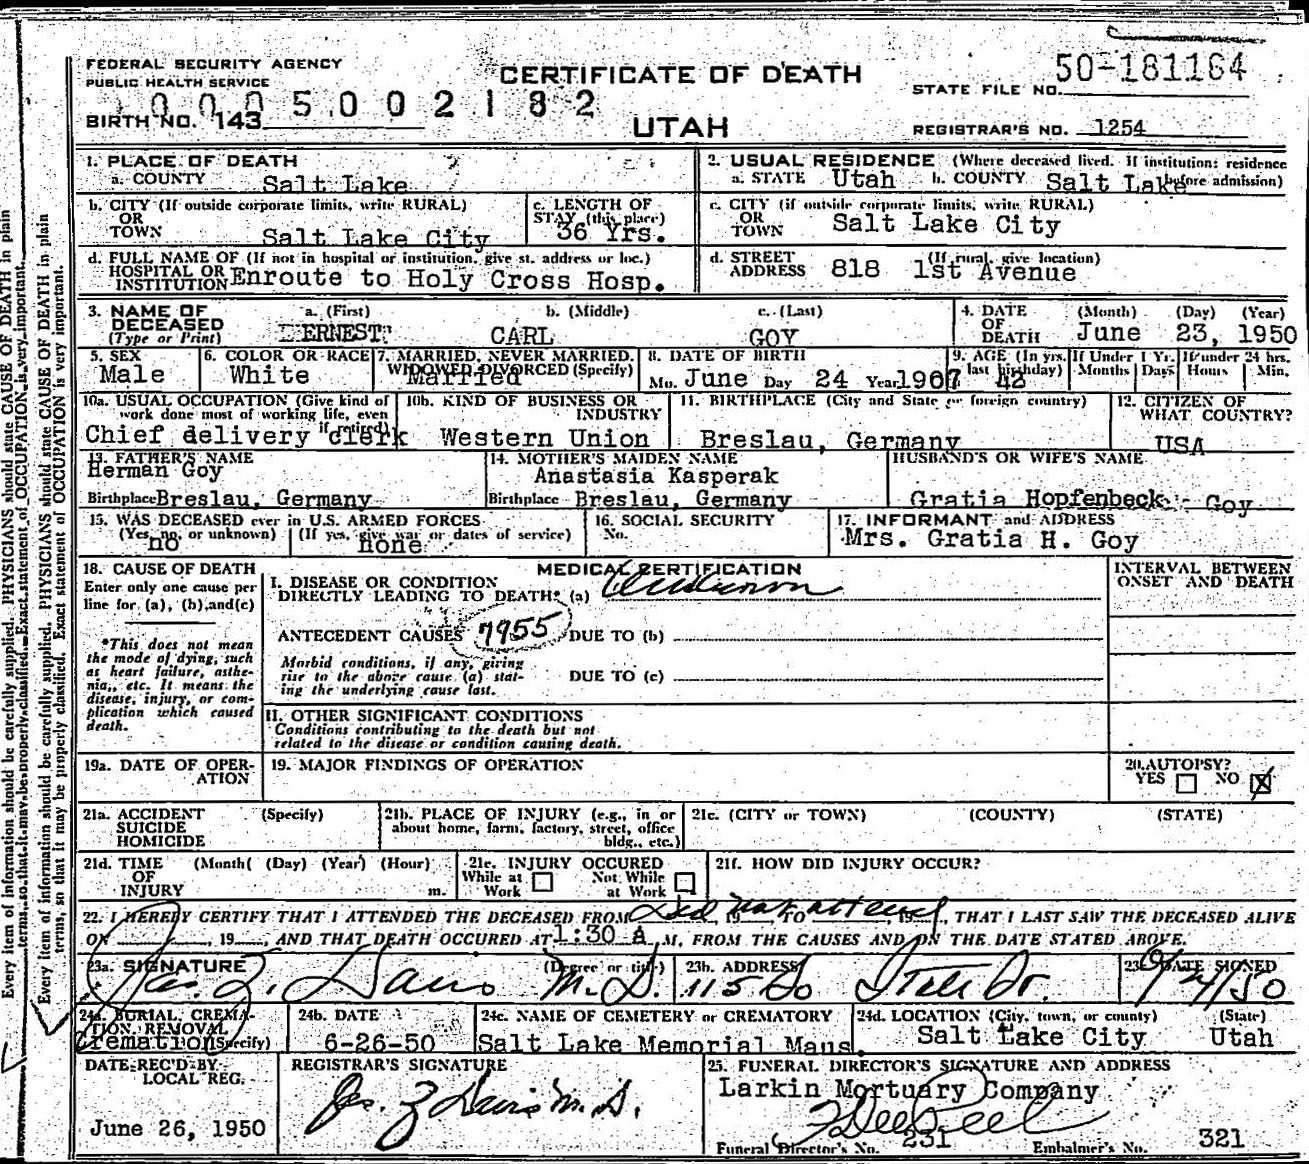 FEDERAL SECURITY AGENCY
PUBLIC HEALTH SERVICE
CERTIFICATE OF DEATH
50-181164
STATE FILE NO.
0005002182
BIRTH NO. 143
UTAH
REGISTRAR'S NO. 1254
1. PLACE OF DEATH
a. COUNTY Salt Lake
2. USUAL RESIDENCE (Where deceased lived. If institution: residence before admission)
a. STATE Utah b. COUNTY Salt Lake
b. CITY (If outside corporate limits, write RURAL) OR TOWN Salt Lake City
c. LENGTH OF STAY (this place) 36 Yrs.
c. CITY (if outside corporate limits, write RURAL) OR TOWN Salt Lake City
d. FULL NAME OF (If not in hospital or institution, give st. address or loc.) HOSPITAL OR INSTITUTION Enroute to Holy Cross Hosp.
d. STREET ADDRESS (If rural, give location) 818 1st Avenue
3. NAME OF DECEASED (Type or Print)
a. (First) ERNEST
b. (Middle) CARL
c. (Last) GOY
4. DATE OF DEATH (Month) (Day) (Year) June 23, 1950
5. SEX Male
6. COLOR OR RACE White
7. MARRIED, NEVER MARRIED, WIDOWED, DIVORCED (Specify) Married
8. DATE OF BIRTH Mo. June Day 24 Year 1907
9. AGE (In yrs. last birthday) 42
If Under 1 Yr. Months Days
If under 24 hrs. Hours Min.
10a. USUAL OCCUPATION (Give kind of work done most of working life, even if retired) Chief delivery clerk
10b. KIND OF BUSINESS OR INDUSTRY Western Union
11. BIRTHPLACE (City and State or foreign country) Breslau, Germany
12. CITIZEN OF WHAT COUNTRY? USA
13. FATHER'S NAME Herman Goy
Birthplace Breslau, Germany
14. MOTHER'S MAIDEN NAME Anastasia Kasperak
Birthplace Breslau, Germany
HUSBAND'S OR WIFE'S NAME
Gratia Hopfenbeck - Goy
15. WAS DECEASED ever in U.S. ARMED FORCES
(Yes, no, or unknown) no
(If yes, give war or dates of service) none
16. SOCIAL SECURITY No.
17. INFORMANT and ADDRESS
Mrs. Gratia H. Goy
18. CAUSE OF DEATH
Enter only one cause per line for (a), (b), and (c)
*This does not mean the mode of dying, such as heart failure, asthenia, etc. It means the disease, injury, or complication which caused death.
MEDICAL CERTIFICATION
INTERVAL BETWEEN ONSET AND DEATH
I. DISEASE OR CONDITION DIRECTLY LEADING TO DEATH* (a)
ANTECEDENT CAUSES 7955 DUE TO (b)
Morbid conditions, if any, giving rise to the above cause (a) stating the underlying cause last.
DUE TO (c)
II. OTHER SIGNIFICANT CONDITIONS
Conditions contributing to the death but not related to the disease or condition causing death.
19a. DATE OF OPERATION
19. MAJOR FINDINGS OF OPERATION
20. AUTOPSY?
YES NO X
21a. ACCIDENT SUICIDE HOMICIDE (Specify)
21b. PLACE OF INJURY (e.g., in or about home, farm, factory, street, office bldg., etc.)
21c. (CITY or TOWN) (COUNTY) (STATE)
21d. TIME OF INJURY (Month( (Day) (Year) (Hour) m.
21e. INJURY OCCURED
While at Work
Not While at Work
21f. HOW DID INJURY OCCUR?
22. I HEREBY CERTIFY THAT I ATTENDED THE DECEASED FROM Did 19 not TO attend 19, THAT I LAST SAW THE DECEASED ALIVE
ON , 19 , AND THAT DEATH OCCURED AT 1:30 a M, FROM THE CAUSES AND ON THE DATE STATED ABOVE.
23a. SIGNATURE (Degree or title) Jas. Z. Davis M.D.
23b. ADDRESS 115 So State St.
23c. DATE SIGNED
24a. BURIAL, CREMATION, REMOVAL (Specify) Cremation
24b. DATE 6-26-50
24c. NAME OF CEMETERY or CREMATORY Salt Lake Memorial Maus.
24d. LOCATION (City, town, or county) (State) Salt Lake City Utah
DATE REC'D BY LOCAL REG.
June 26, 1950
REGISTRAR'S SIGNATURE
Jas. Z Davis M.D.
25. FUNERAL DIRECTOR'S SIGNATURE AND ADDRESS
Larkin Mortuary Company
Funeral Director's No. 231 Embalmer's No. 321
Every item of information should be carefully supplied. PHYSICIANS should state CAUSE OF DEATH in plain
terms, so that it may be properly classified. Exact statement of OCCUPATION is very important.
Every item of information should be carefully supplied. PHYSICIANS should state CAUSE OF DEATH in plain
terms, so that it may be properly classified. Exact statement of OCCUPATION is very important.